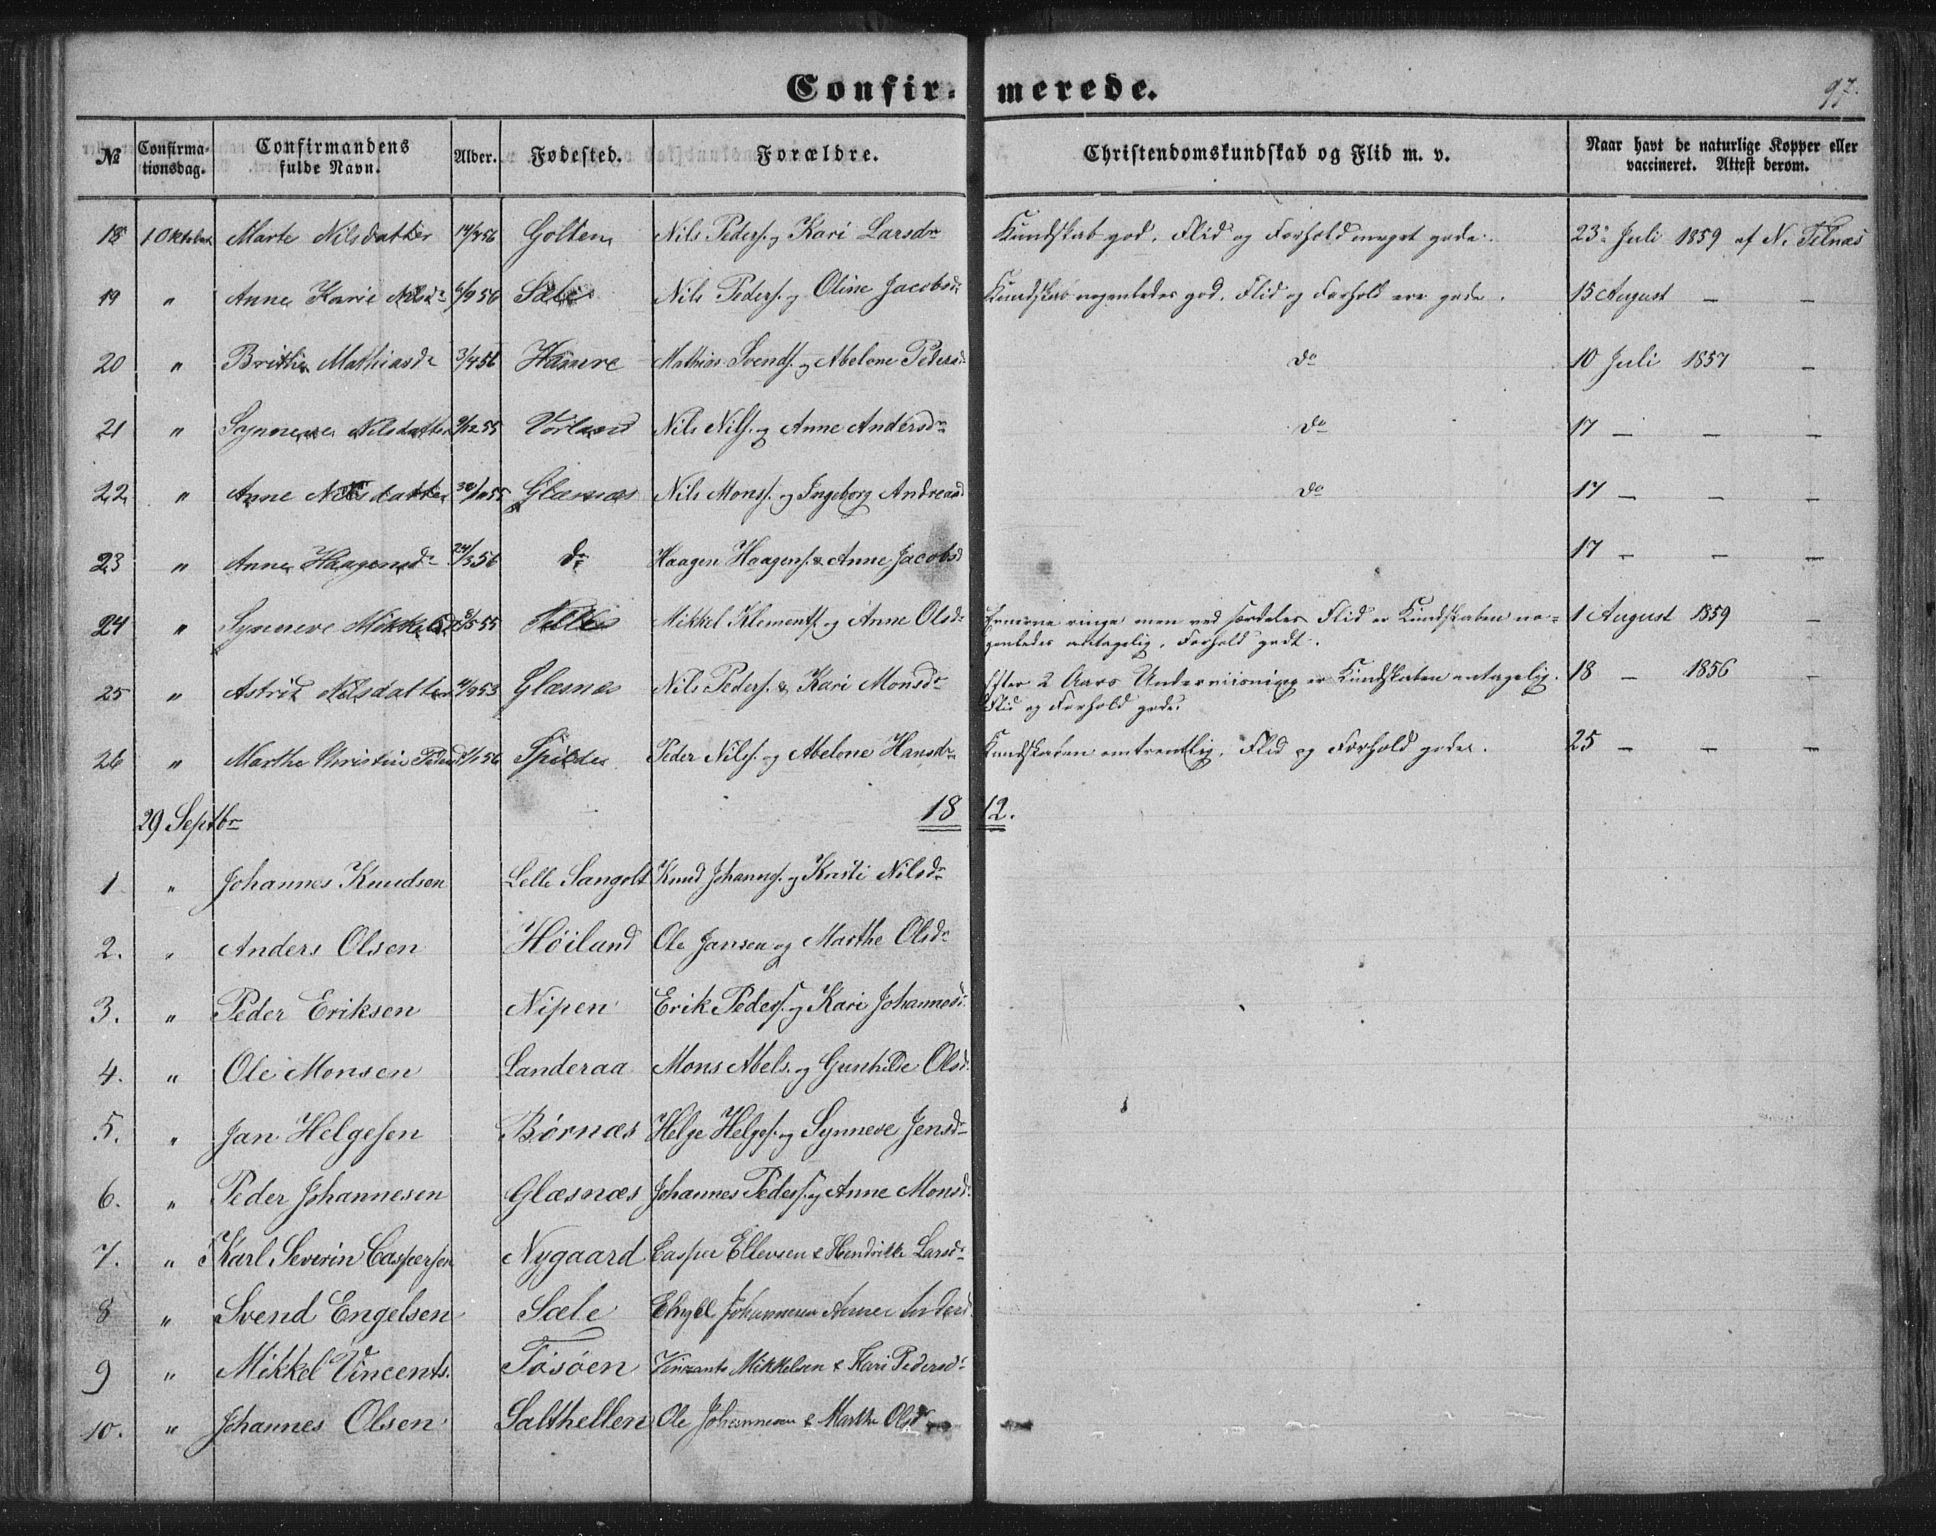 Confir- merede.
97.
№ Confirma- tionsdag. Confirmandens fulde Navn. Alder. Fødested. Forældre. Christendomskundskab og Flid m. v. Naar havt de naturlige Kopper eller vaccineret. Attest derom.
18 1 Oktober Marte Nilsdatter 14/4 56 Golten Nils Peders. og Kari Larsdr Kundskab god, Flid og Forhold meget gode. 23 Juli 1859 af N. Telnæs
19 " Anne Karie Nilsdr 6/9 56 Sæle Nils Peders. og Oline Jacobsdr Kundskab nogenledes god, Flid og Forhold ere gode. 15 August — —
20 " Brithe Mathiasdr 3/4 56 Hamre Mathias Svends. og Abelone Pedersd do 10 Juli 1857 —
21 " Synneve Nilsdatter 9/12 55 Vorland Nils Nils. og Anne Andersdr do 17 — — —
22 " Anne Nilsdatter 30/11 55 Glæsnæs Nils Monss. og Ingeborg Andreasd do 17 — — —
23 " Anne Haagensdr 24/3 56 do Haagen Haagens. & Anne Jacobsd 17 — — —
24 " Synneve Mikkelsd 55 Mikkel Klements. og Anne Olsdr Evnerne ringe men ved særdeles Flid er Kundskaben no-
genledes antagelig, Forhold godt. 1 August 1859 —
25 " Astrid Nilsdatter 4/9 53 Glæsnæs Nils Peders. & Kari Monsdr Efter 2 Aars Underviisning er Kundskaben antagelig.
Flid og Forhold gode. 18 — 1856 —
26 " Marthe Christine Pedersd 56 Spilde Peder Nilss. og Abelone Hansdr Kundskaben omtrentlig, Flid og Forhold gode. 25 — — —
29 Septbr 18 72.
1 " Johannes Knudsen Lelle Sangolt Knud Johanns. og Kristi Nilsdr
2. " Anders Olsen Høiland Ole Jansen og Marthe Olsdr
3. " Peder Eriksen Nipen Erik Peders. og Kari Johannesd
4. " Ole Monsen Landeraa Mons Abels. og Gunhilde Olsd.
5. " Jan Helgesen Børnæs Helge Helges. og Synneve Jensdr
6. " Peder Johannesen Glæsnæs Johannes Peders. og Anne Monsd.
7. " Karl Severin Caspersen Nygaard Casper Ellevsen & Hendrikke Larsdr
8 " Svend Engelsen Sæle Johannesen Anne Andersd.
9 " Mikkel Vincents. Tøsøen Vinzents Mikkelsen & Kari Pedersdr
10. " Johannes Olsen Salthellen Ole Johannesen & Marthe Olsdr